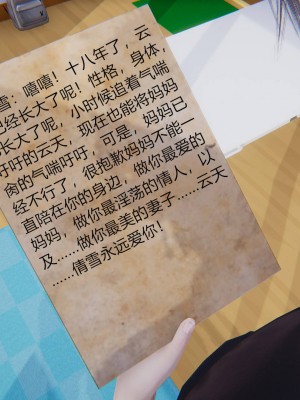 雪：嘻嘻！十八年了，云
已经长大了呢！性格，身体，
长大了呢，小时候追着气喘
吁吁的云天，现在也能将妈妈
肏的气喘吁吁，可是，妈妈已
经不行了，很抱歉妈妈不能一
直陪在你的身边，做你最爱的
妈妈，做你最淫荡的情人，以
及……做你最美的妻子……云天
……倩雪永远爱你！